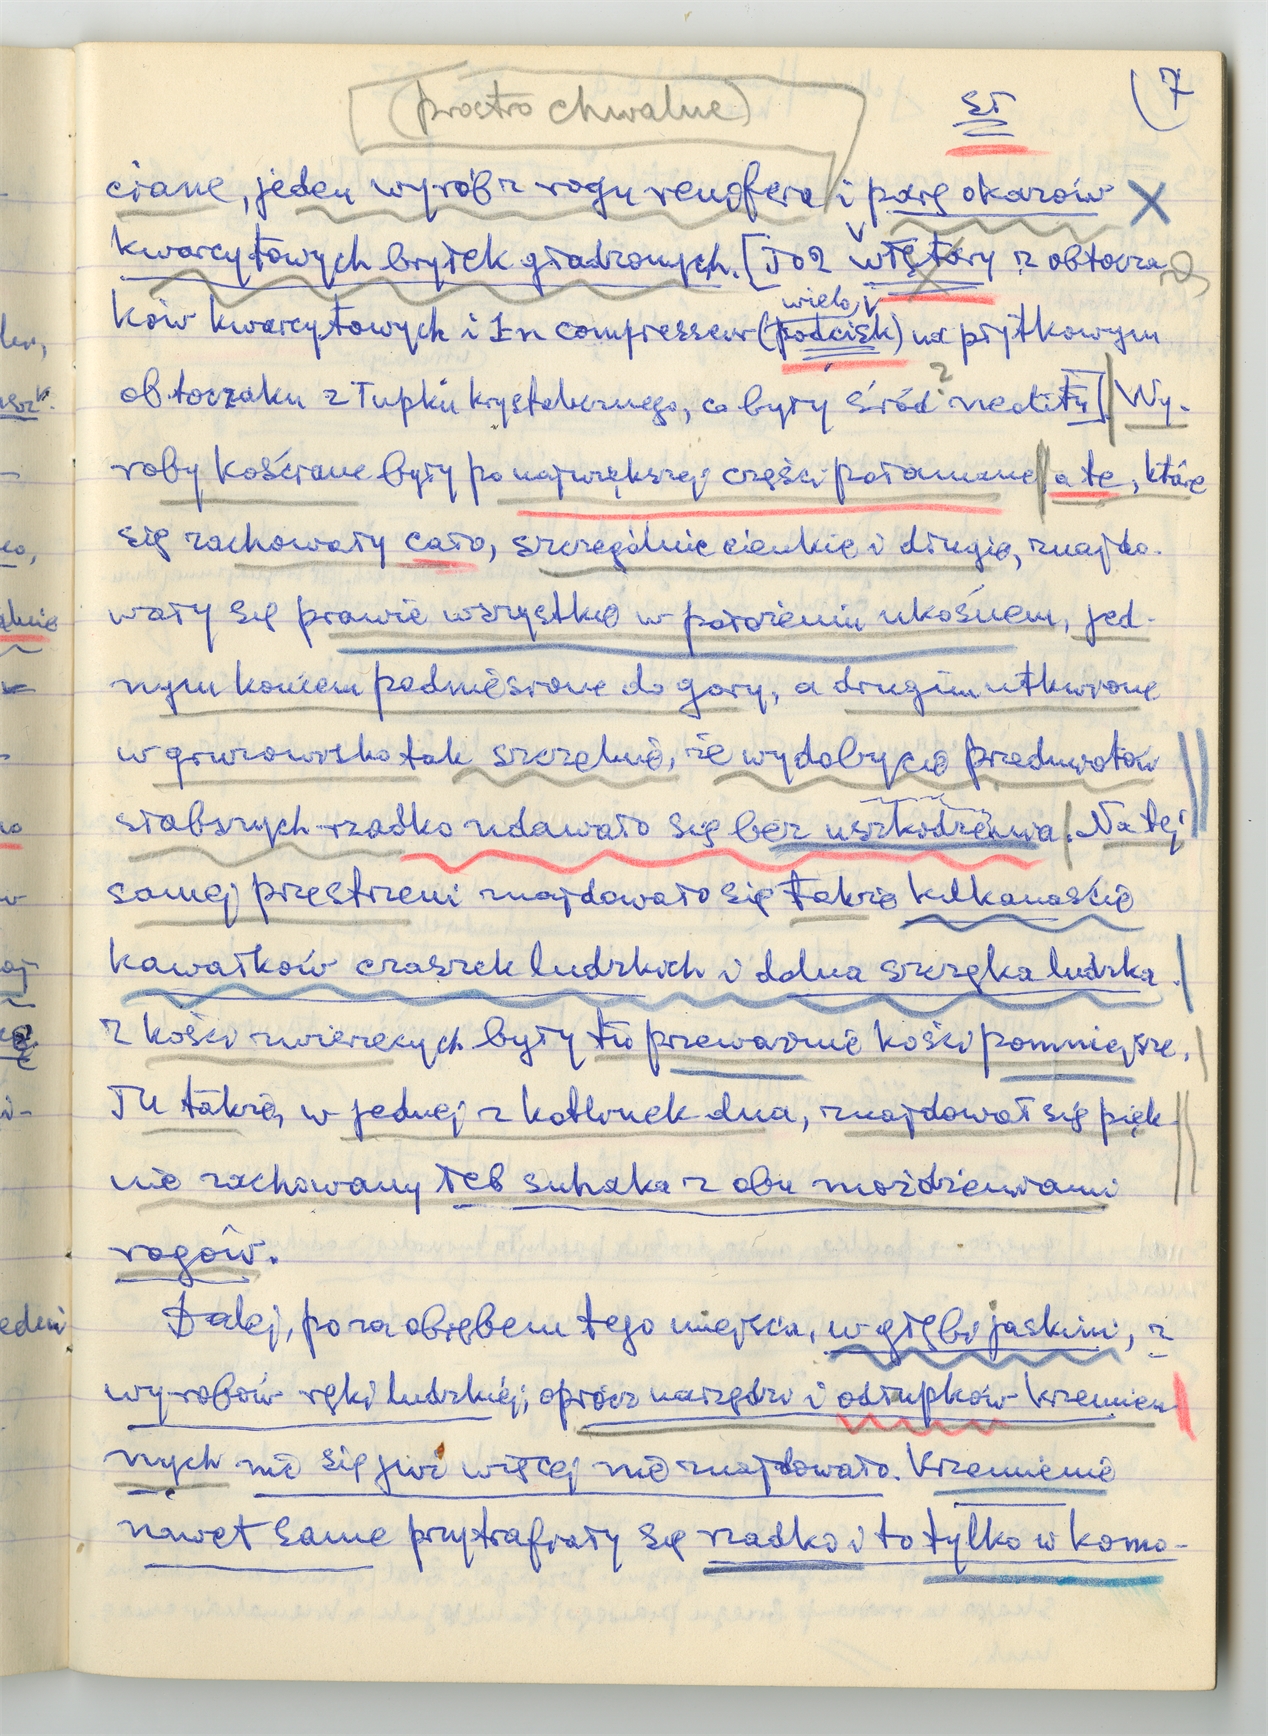 (prostro chwalne)
ST
7
ciane, jeden wyrób z rogu renifera i parę okazów
kwarcytowych bryłek gładzonych. [To 2 wlętory z obtocza
ków kwarcytowych i 1n compresseur (podcisk) na płytkowym
wielo,
obtoczaku z łupku krystalicznego, co były śród nefitu] Wy-
roby kościane były po największej części połamane, a te, które
się zachowały cało, szczególnie cienkie i długie, znajdo-
wały się prawie wszystkie w położeniu ukośnem, jed-
nym końcem podniesione do góry, a drugim utkwione
w gruzowisko tak szczelnie, że wydobycie przedmiotów
słabszych rzadko udawało się bez uszkodzenia. Na tej
samej przestrzeni znajdowało się także kilkanaście
kawałków czaszek ludzkich i dolna szczęka ludzka.
Z kości zwierzęcych były tu przeważnie kości pomniejsze.
Tu także, w jednej z kotlinek dna, znajdował się pięk-
nie zachowany łeb suhaka z obu możdżeniami
rogów.
Dalej, poza obrębem tego miejsca, w głębi jaskini, z
wyrobów ręki ludzkiej, oprócz narzędzi i odłupków krzemien
nych nic się już więcej nie znajdowało. Krzemienie
nawet same przytrafiały się rzadko i to tylko w komo-